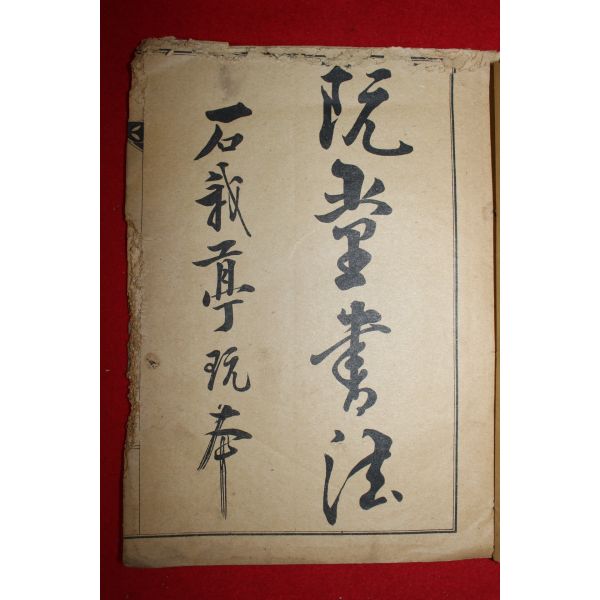 阮堂書法
石栽亭玩本